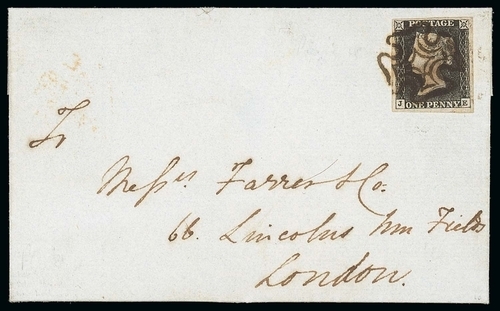 POSTAGE
J E
ONE PENNY
To
Messrs Farrer & Co.
66. Lincolns Inn Fields
London.